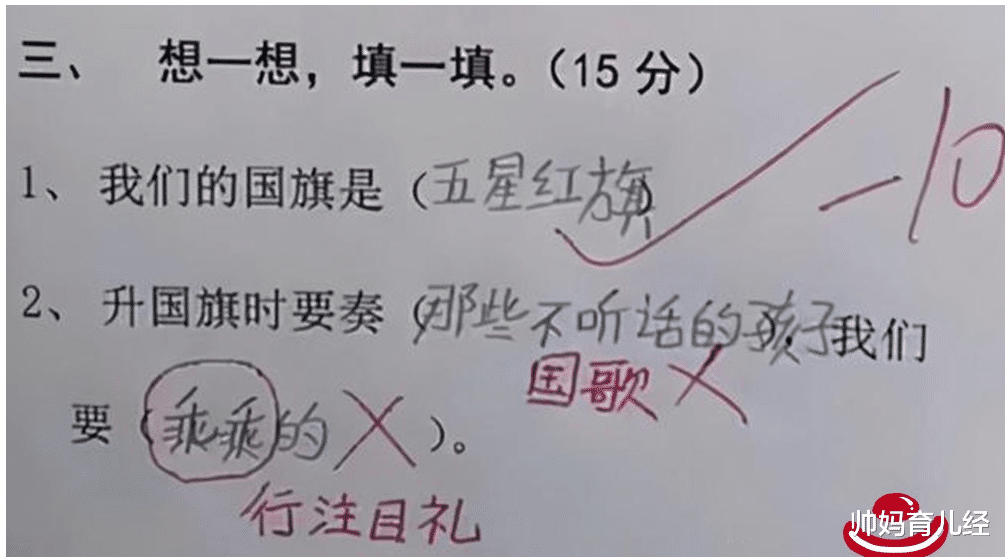 三、 想一想，填一填。（15 分）
-10
1、 我们的国旗是（五星红旗）
2、 升国旗时要奏（那些不听话的孩子），我们
国歌
要（乖乖的）。
行注目礼
帅妈育儿经